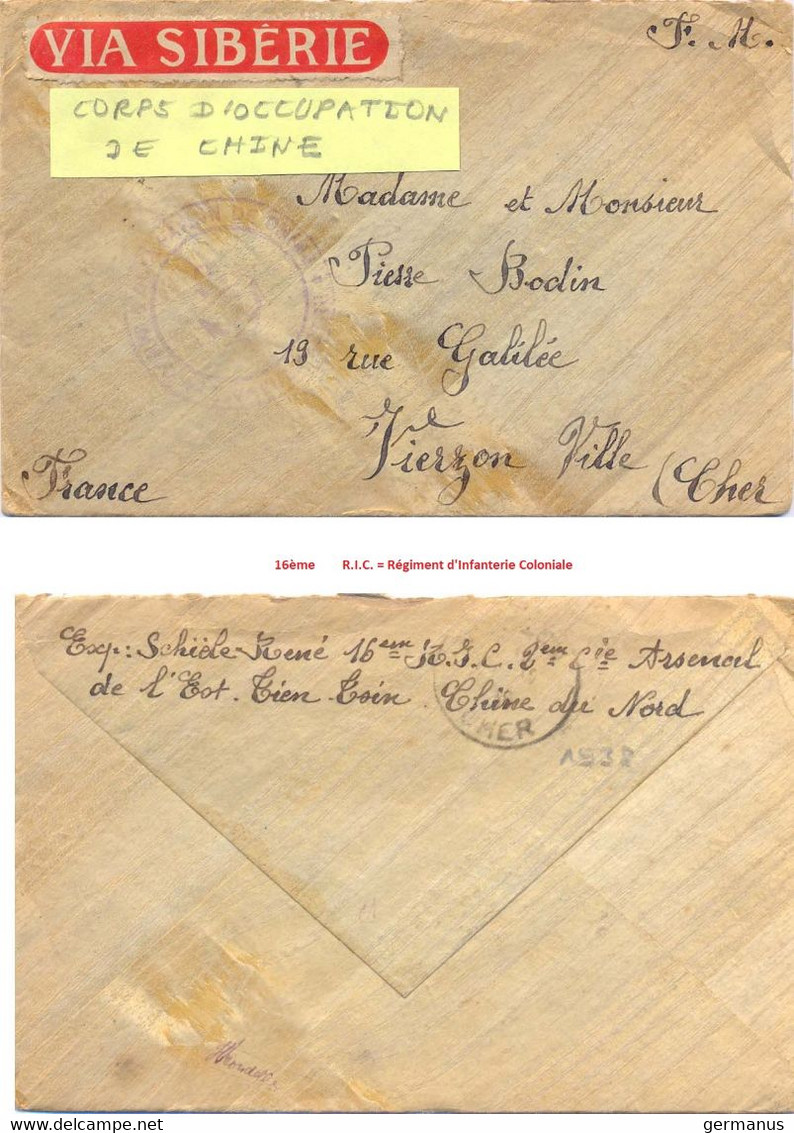 VIA SIBÉRIE
F. M.
CORPS D'OCCUPATION
DE CHINE
Madame et Monsieur
Pierre Bodin
19 rue Galilée
Vierzon Ville
France (Cher
16ème R.I.C. = Régiment d'Infanterie Coloniale
Exp: Schièle René 16em R.I.C. 2em Cie Arsenal
de l'Est. Tien Tsin. Chine du Nord
CHER
1938
germanus